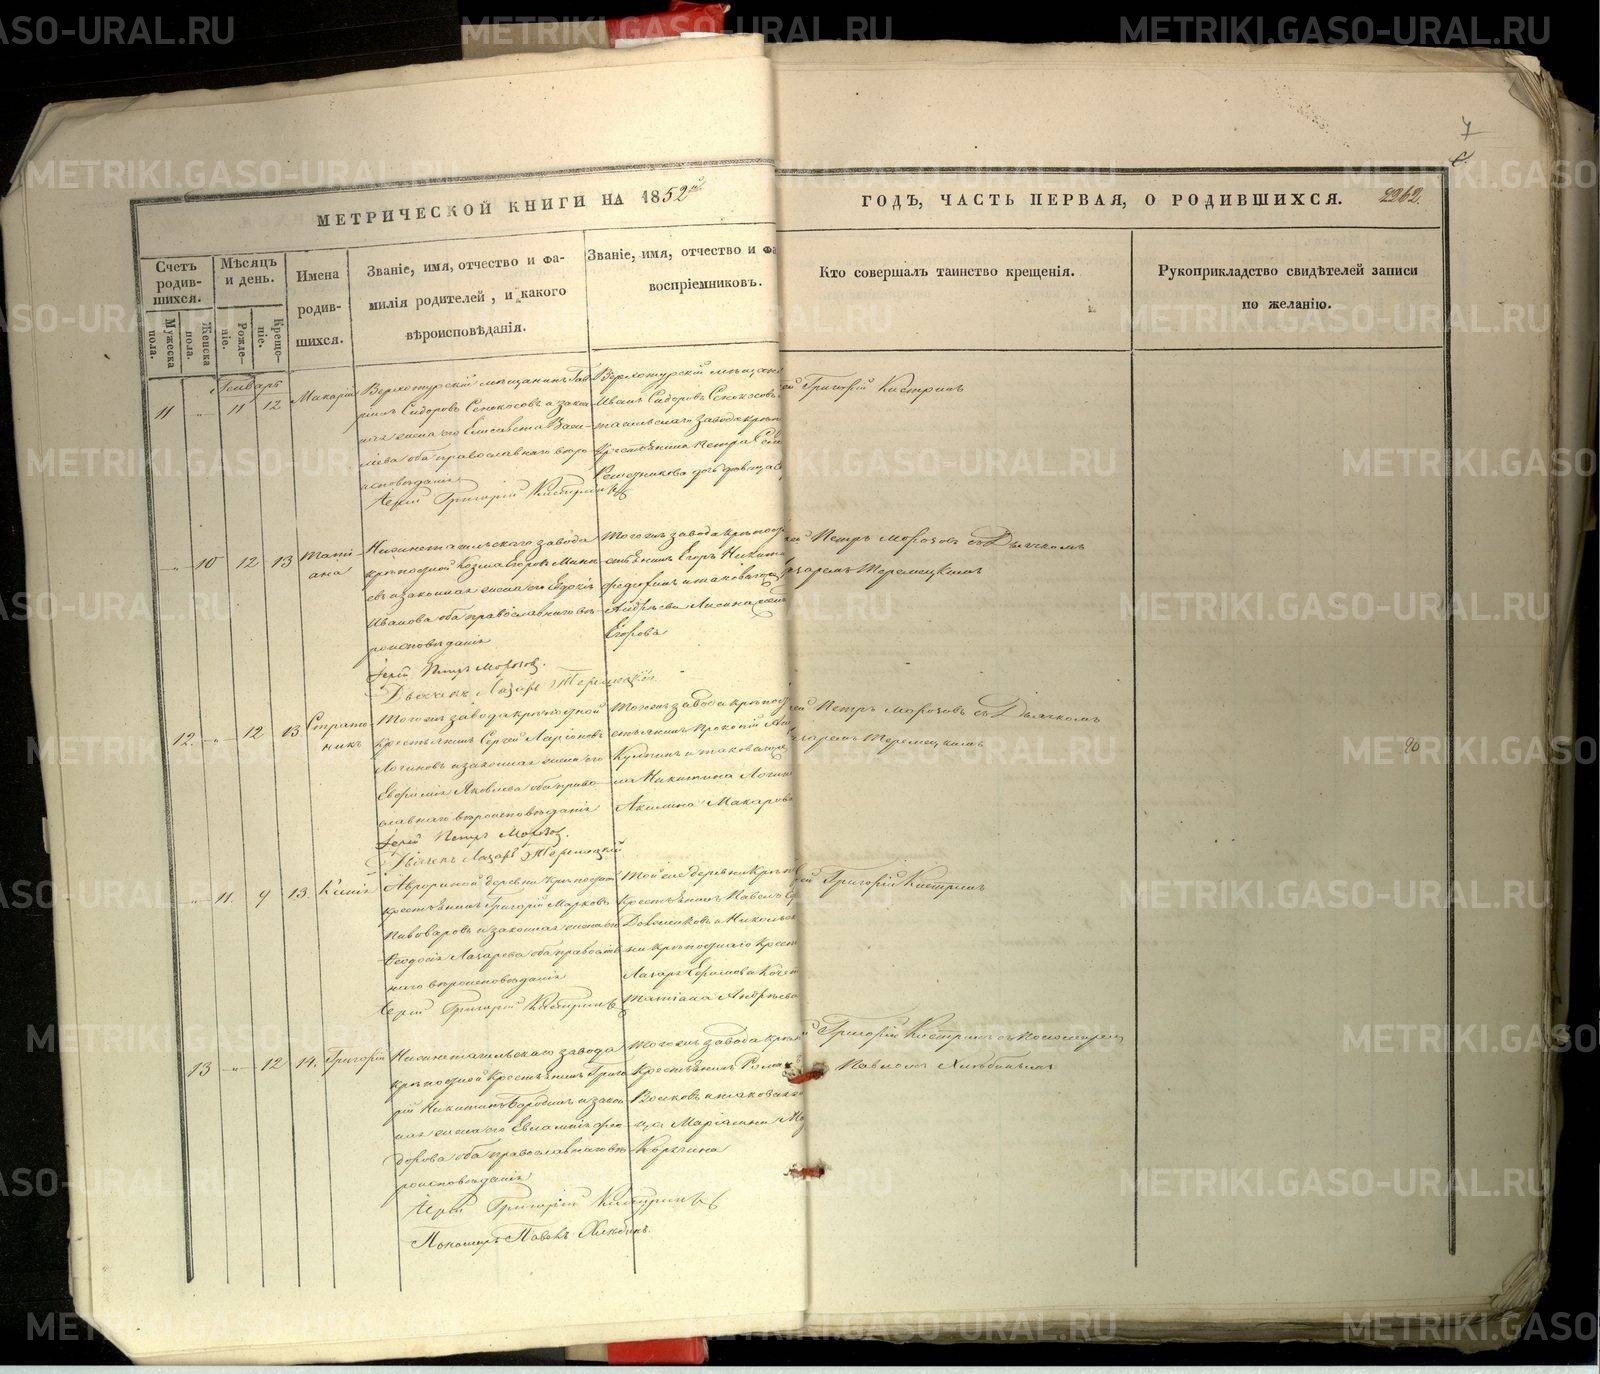 МЕТРИЧЕСКОЙ КНИГИ НА 1852й
ГОДЪ, ЧАСТЬ ПЕРВАЯ, О РОДИВШИХСЯ.
2262.
7
Счетъ родив-
шихся.
Мужеска пола.
Женска пола.
Мѣсяцъ и день.
Рожде-
ніе.
Креще-
ніе.
Имена
родив-
шихся.
Званіе, имя, отчество и фа-
милія родителей, и какого
вѣроисповѣданія.
Званіе, имя, отчество и фа
воспріемниковъ.
Кто совершалъ таинство крещенія.
Рукоприкладство свидѣтелей записи
по желанію.
Январь
11 " 11 12 Макарій
Верхотурскій мѣщанинъ Гав
рилъ Сидоровъ Сенокосовъ и закон
ная жена его Елисавета Васи-
лієва оба православнаго вѣро
исповѣданія
Іерей Григорій Кистринъ
Верхотурскій мѣщан
Иванъ Сидоровъ Сенокосовъ
тагильскаго завода крѣп
крестьянина Петра
Решетникова дочь дѣвица
ей Григорій Кистринъ
" 10 12 13 Тати-
ана
Нижнетагильскаго завода
крѣпостной Козма Егоровъ
евъ и законная жена его Евдокія
Иванова оба православнаго вѣ-
роисповѣданія
Іерей Петръ Морозовъ.
Дьячекъ Лазарь Теремецкій
Тогожъ завода крѣпос
Егоръ Никит
и таковаго
Андрѣева
Егорова
ей Петръ Морозовъ съ Дьячкомъ
Лазаремъ Теремецкимъ
12. " 12 13 Страто-
никъ
Тогожъ завода крѣпостной
крестьянинъ Сергей Ларіоновъ
Логиновъ и законная жена его
Евфимія Яковлева оба право-
славнаго вѣроисповѣданія
Іерей Петръ Морозовъ.
Дьячекъ Лазарь Теремецкій
Тогожъ завода крѣпос
Прокопій
и таковаго
Никитина Логин
Акилина Макаров
ей Петръ Морозовъ съ Дьячкомъ
Лазаремъ Теремецкимъ
" 11. 9 13. Ксенія
деревни крѣпостной
крестьянинъ Григорій Марковъ
Пивоваровъ и законная жена его
Феодосія Лазарева оба православ
наго вѣроисповѣданія
Іерей Григорій Кистринъ
Той же деревни крѣп
крестьянинъ Павелъ
и Никольск
крѣпостнаго крест
Лазаря Ефимова
Татіана Андрѣева
ей Григорій Кистринъ
13 " 12 14. Григорій
Нижнетагильскаго завода
крѣпостной крестьянинъ Григо
рій Никитинъ Бородинъ и закон
ная жена его Евлампія Фео
дорова оба православнаго вѣ-
роисповѣданія
Іерей Григорій Кистринъ
Пономарь Павелъ Хлѣбинъ.
Тогожъ завода крѣп
крестьянинъ Роман
и таковаго
ца Маріанна
Корягина
й Григорій Кистринъ съ Пономаремъ
Павломъ Хлѣбинымъ
METRIKI.GASO-URAL.RU